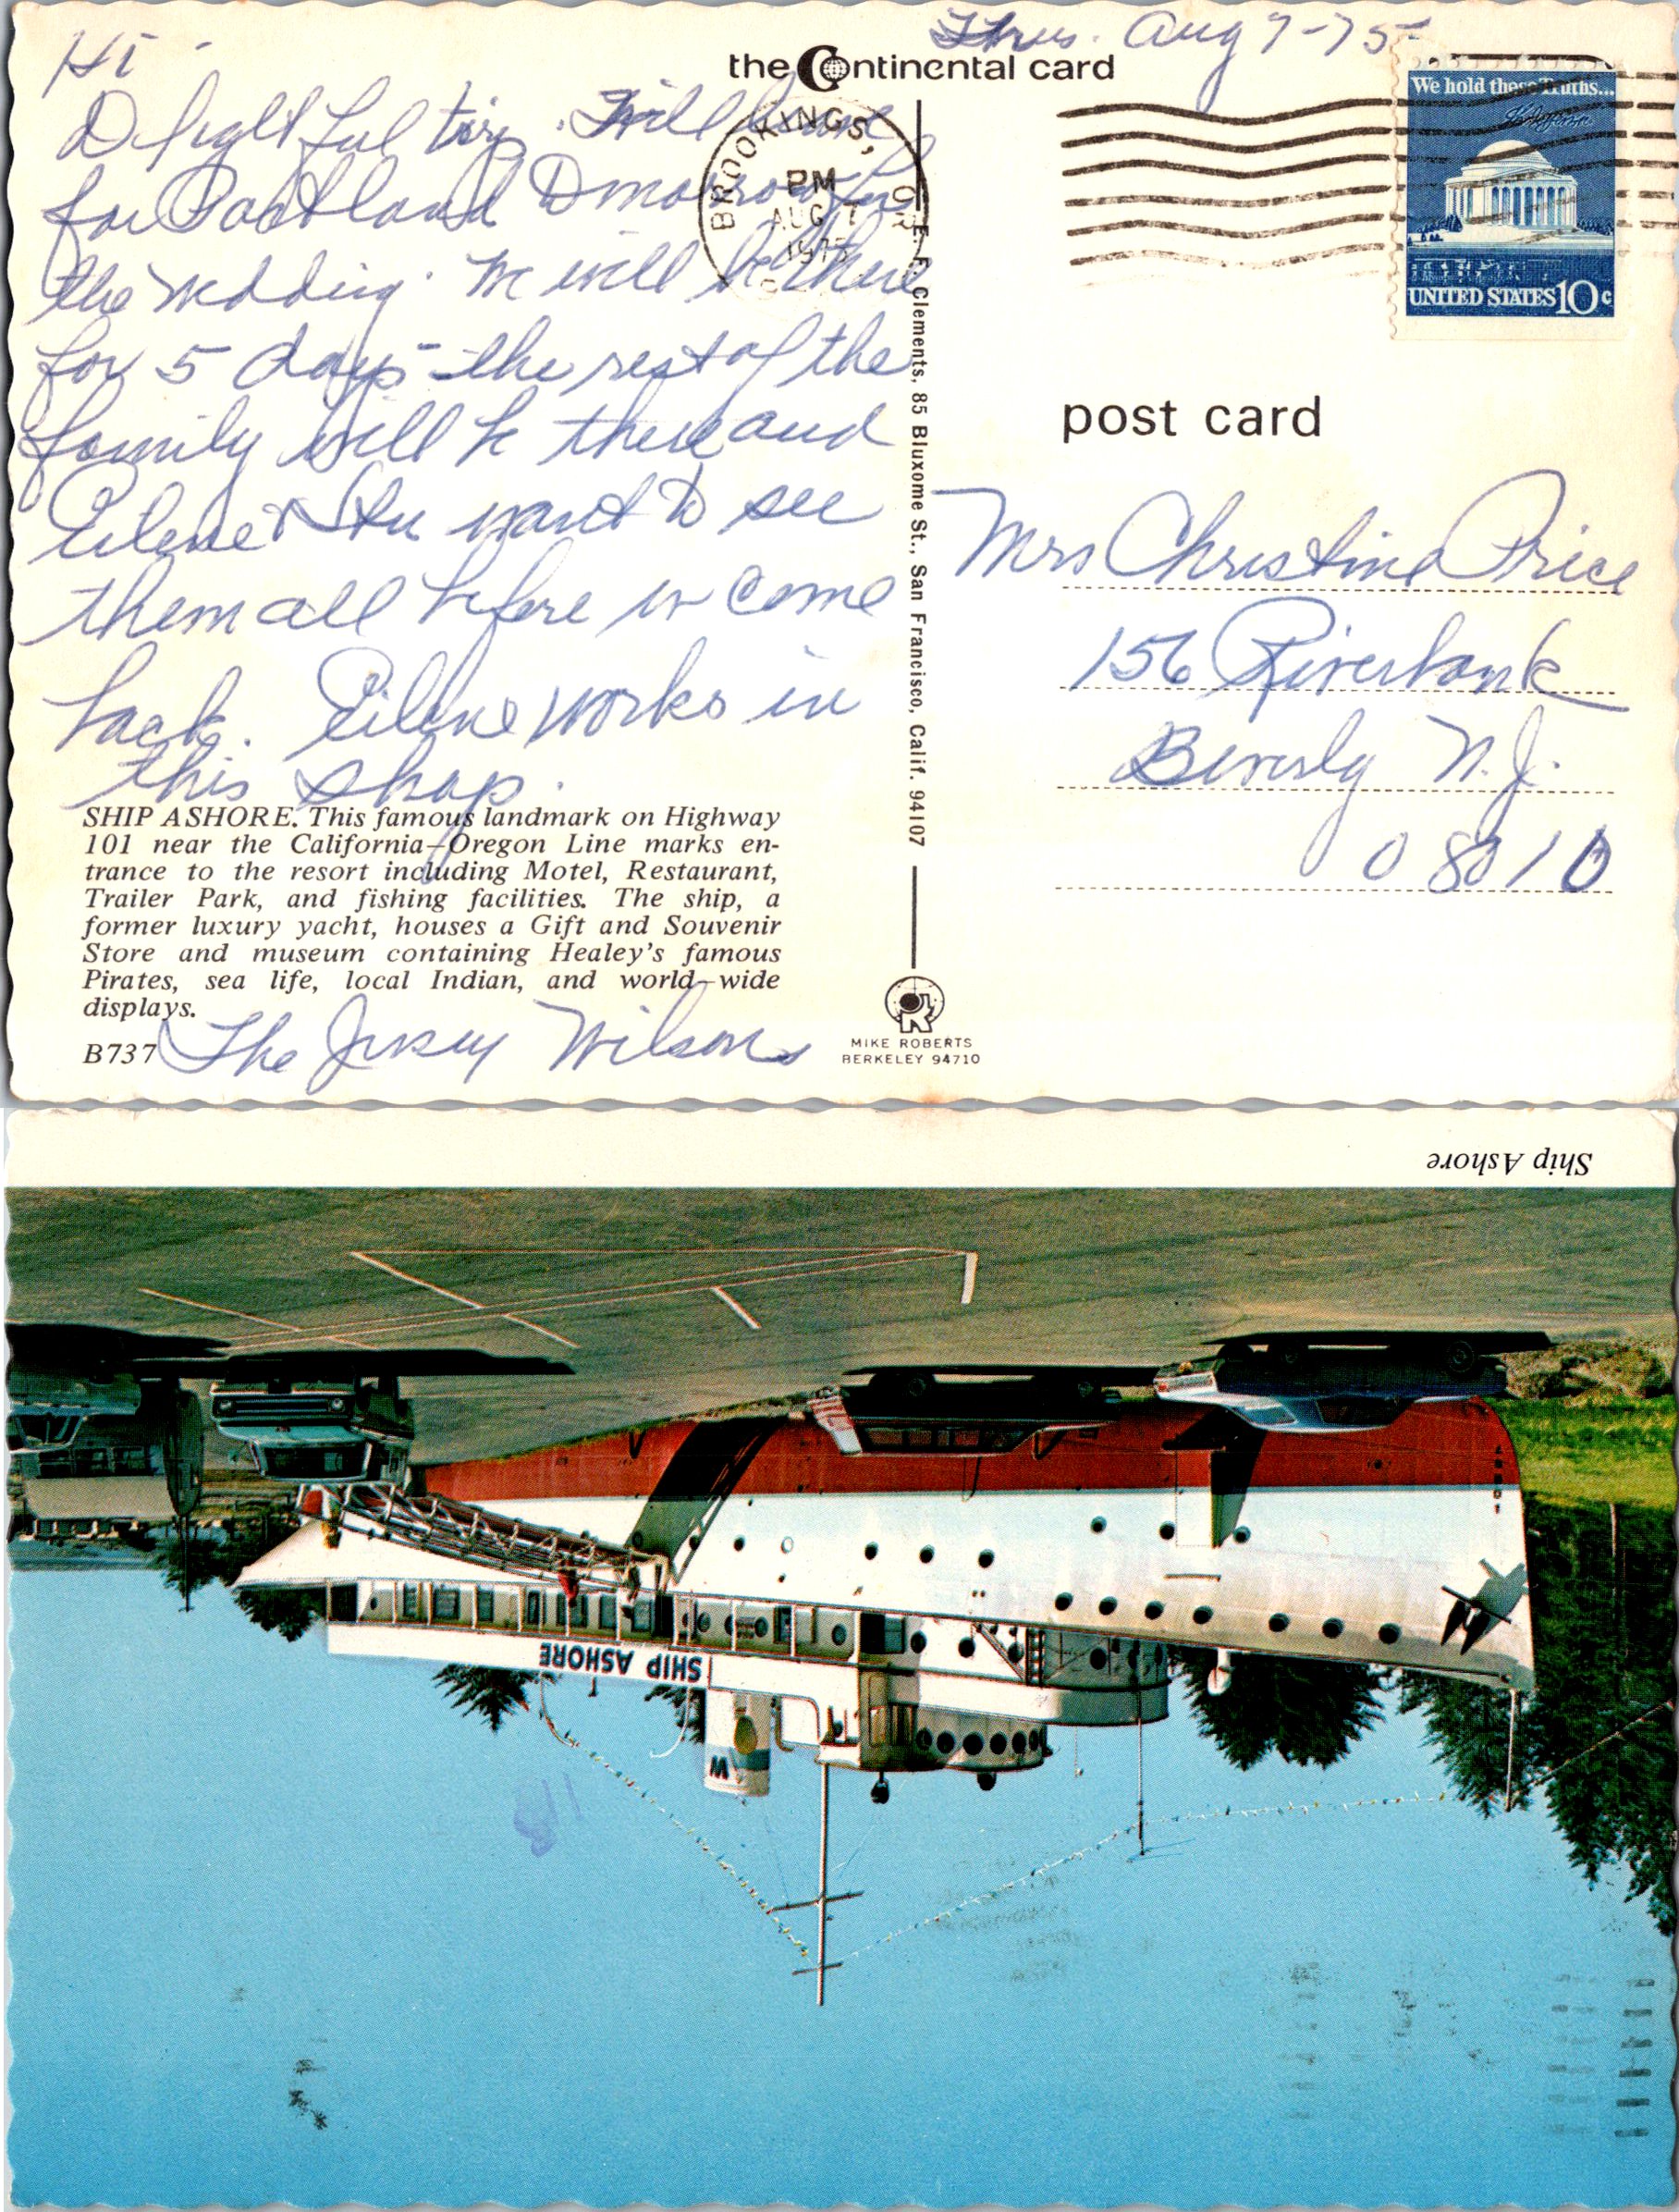 Thrus. Aug 7-75
Hi -
Delightful trip. Will leave
for Portland Tomorrow for
the wedding. We will be there
for 5 days - the rest of the
family will be there and
Eilene & Stu want to see
them all before we come
back. Eilene works in
this shop.
SHIP ASHORE. This famous landmark on Highway
101 near the California-Oregon Line marks en-
trance to the resort including Motel, Restaurant,
Trailer Park, and fishing facilities. The ship, a
former luxury yacht, houses a Gift and Souvenir
Store and museum containing Healey's famous
Pirates, sea life, local Indian, and world-wide
displays.
B737
The Jersey Wilsons
the Continental card
BROOKINGS, OR
PM
AUG 7
1975
E. F. Clements, 85 Bluxome St., San Francisco, Calif. 94107
MIKE ROBERTS
BERKELEY 94710
We hold these Truths...
UNITED STATES 10c
post card
Mrs Christine Price
156 Riverbank
Beverly N.J.
08010
Ship Ashore
SHIP ASHORE
W